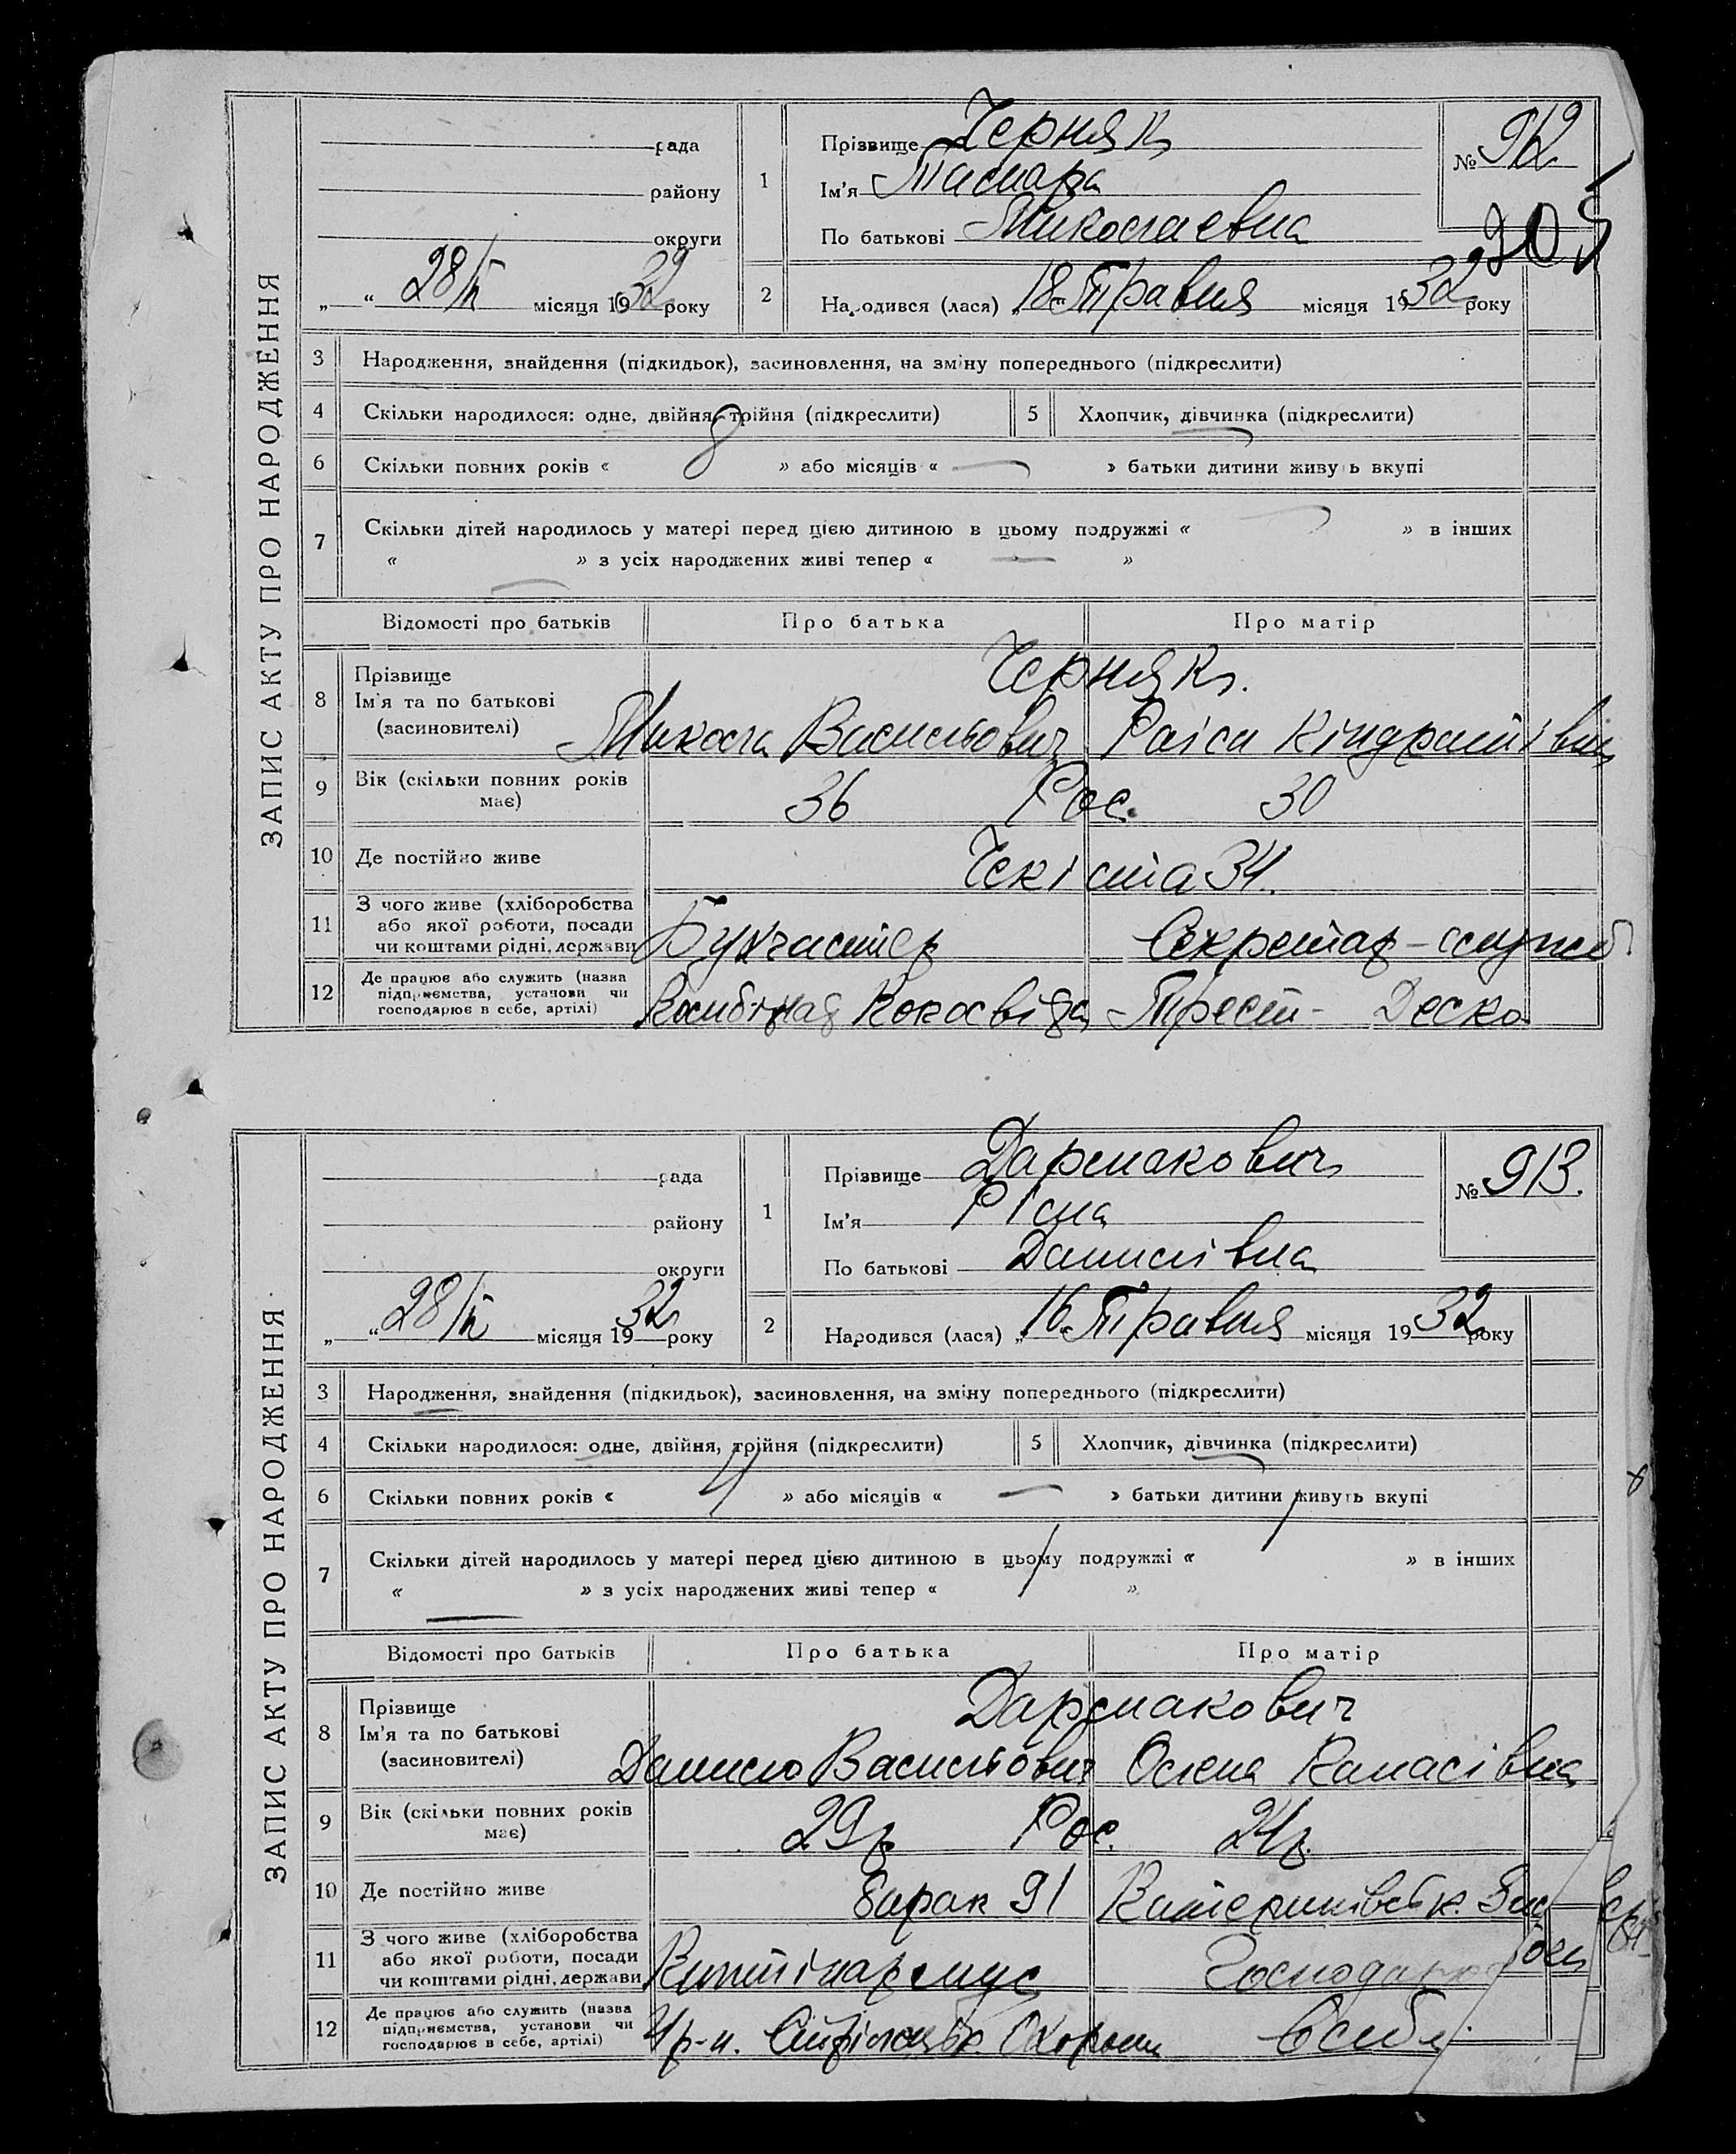 ЗАПИС АКТУ ПРО НАРОДЖЕННЯ
рада
району
округи
„ “ 28/V місяця 1932 року
1
Прізвище Черняк
Ім'я Тамара
По батькові Миколаевна
№ 912
905
2
Народився (лася) „ 18 Травня місяця 1932 року
3 Народження, знайдення (підкидьок), засиновлення, на зміну попереднього (підкреслити)
4 Скільки народилося: одне, двійня, трійня (підкреслити) 5 Хлопчик, дівчинка (підкреслити)
6 Скільки повних років « 8 » або місяців « — » батьки дитини живуть вкупі
7 Скільки дітей народилось у матері перед цією дитиною в цьому подружжі « — » в інших
« — » з усіх народжених живі тепер « — »
Відомості про батьків Про батька Про матір
8 Прізвище
Ім'я та по батькові
(засиновителі)
Черняк.
Микола Васильович Раіса Кіндратівна
9 Вік (скільки повних років має) 36 Рос. 30
10 Де постійно живе Чекіста 34.
11 З чого живе (хліборобства або якої роботи, посади чи коштами рідні, держави Бухгалтер Секретар - служб
12 Де працює або служить (назва підприємства, установи чи господарює в себе, артілі) Трест -
ЗАПИС АКТУ ПРО НАРОДЖЕННЯ
рада
району
округи
„ “ 28/V місяця 1932 року
1
Прізвище Дармакович
Ім'я Ріма
По батькові Данилівна
№ 913.
2
Народився (лася) „ 16 Травня місяця 1932 року
3 Народження, знайдення (підкидьок), засиновлення, на зміну попереднього (підкреслити)
4 Скільки народилося: одне, двійня, трійня (підкреслити) 5 Хлопчик, дівчинка (підкреслити)
6 Скільки повних років « 4 » або місяців « — » батьки дитини живуть вкупі
7 Скільки дітей народилось у матері перед цією дитиною в цьому подружжі « 1 » в інших
« — » з усіх народжених живі тепер « 1 »
Відомості про батьків Про батька Про матір
8 Прізвище
Ім'я та по батькові
(засиновителі)
Дармакович
Данило Васильович Олена Панасівна
9 Вік (скільки повних років має) 29р Рос. 24р.
10 Де постійно живе барак 91
11 З чого живе (хліборобства або якої роботи, посади чи коштами рідні, держави
12 Де працює або служить (назва підприємства, установи чи господарює в себе, артілі)